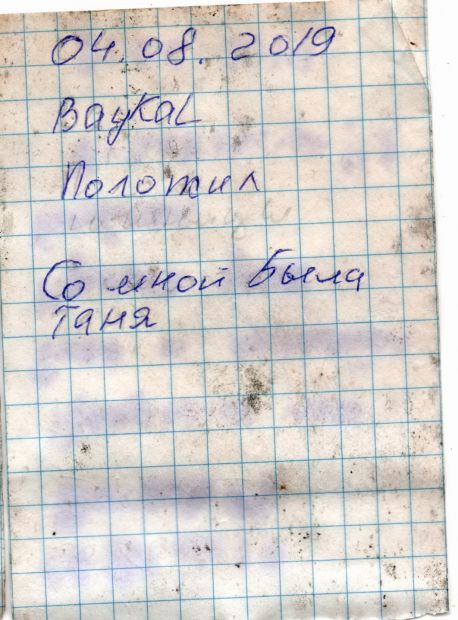 04.08.2019
BayKaL
Положил
Со мной была
Таня